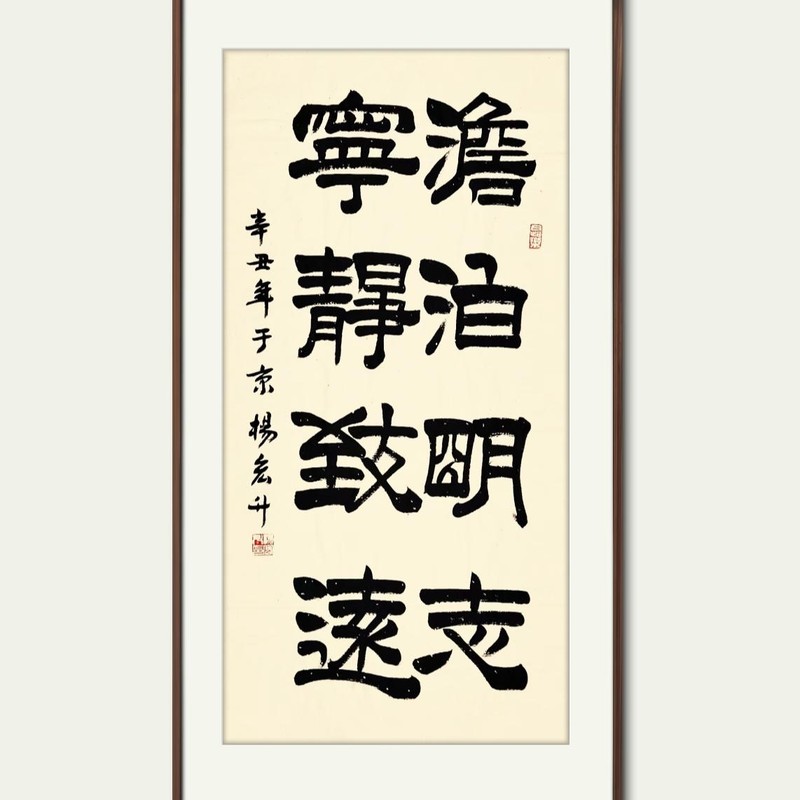 澹泊明志
寧靜致遠
辛丑年于京楊宏升